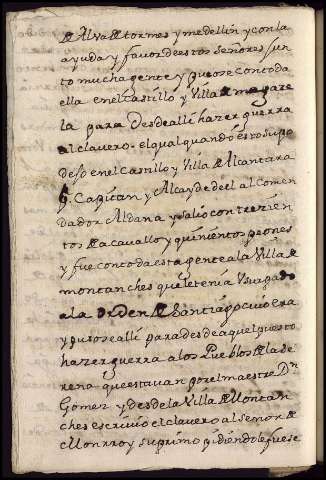 de Alva de tormes y medellin y con la
ayuda y favor de estos señores jun
to mucha gente y pusose con toda
ella en el Castillo y Villa de magaze
la para desde alli hazer guerra
al clavero. el qual quando esto supo
dejo en el Castillo y Villa de Alcantara
Capitan y Alcayde de el al Comen
dador Aldana y salio con trezien
tos de a cavallo y quinientos peones
y fue con toda esta gente a la Villa de
montanches que le tenia Usurpado
a la orden de Santiago cuio era
y pusose alli para desde aquel puesto
hazer guerra a los Pueblos de la se
rena que estavan por el maestre Dn
Gomez y desde la Villa de Montan
ches escrivio el clavero al señor de
Monrroy su primo pidiendole fuese